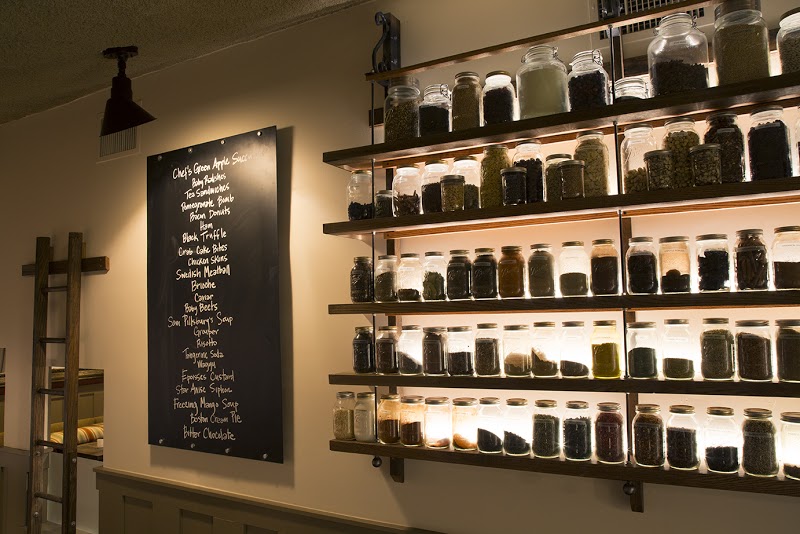 Chef's Green Apple
Baby Radishes
Tea Sandwiches
Pomegranate Bomb
Bacon Donuts
Ham
Black Truffle
Crab Cake Bites
Chicken Skins
Swedish Meatball
Brioche
Caviar
Baby Beets
Sam Pillsbury's Soup
Risotto
Tangerine Soda
Wagyu
Epoisses Custard
Star Anise Siphon
Freezing Mango Soup
Boston Cream Pie
Bitter Chocolate